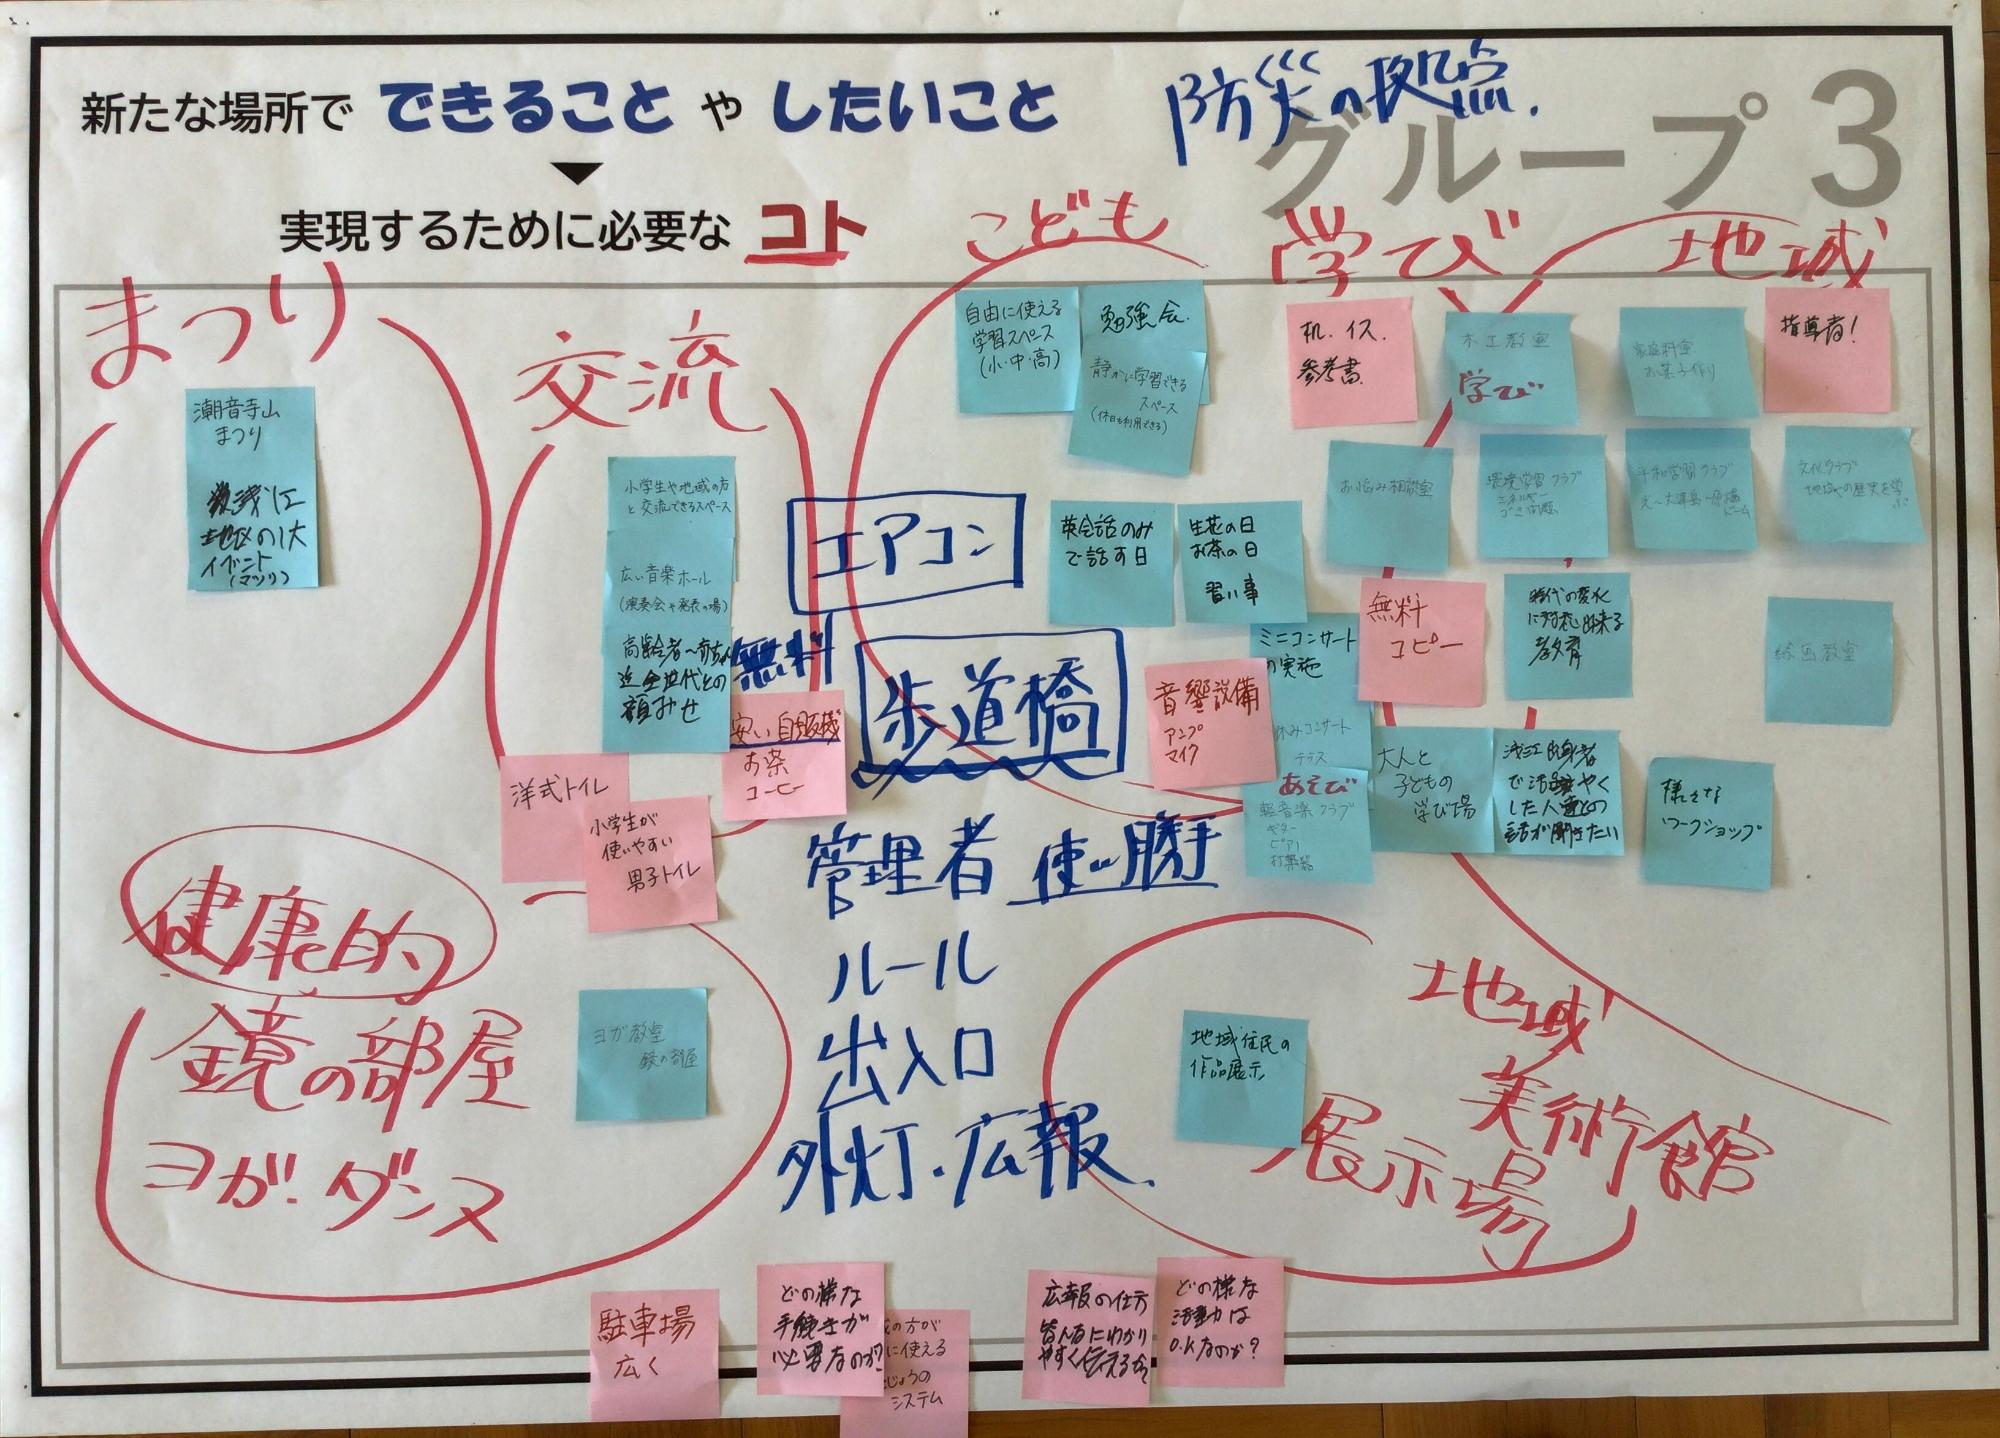 新たな場所で できること や したいこと
実現するために必要な コト
防災の拠点.
グループ 3
まつり
潮音寺山
まつり
地区の1大
イベント
(マツリ)
交流
小学生や地域の方
と交流できるスペース
広い音楽ホール
(演奏会や発表の場)
高齢者～
全世代との
顔みせ
無料
安い自販機
お茶
コーヒー
洋式トイレ
小学生が
使いやすい
男子トイレ
こども
自由に使える
学習スペース
(小・中・高)
勉強会.
静かに学習できる
スペース
(休日も利用できる)
英会話のみ
で話す日
生花の日
お茶の日
習い事
ミニコンサート
の実施
休みコンサート
テラス
あそび
軽音楽クラブ
ギター
ピアノ
打楽器
音響設備
アンプ
マイク
学び
机.イス.
参考書.
木工教室
学び
お悩み相談室
環境学習クラブ
エネルギー
ゴミ問題
無料
コピー
時代の変化
に対応出来る
教育
大人と
子どもの
学び場
浅江出身者
で活躍や
した人達との
話が聞きたい
地域
家庭科室
お菓子作り
指導者!
平和学習クラブ
文化クラブ
地域の歴史を学ぶ
絵画教室
様々な
ワークショップ
エアコン
歩道橋
管理者 使い勝手
ルール
出入口
外灯.広報.
健康的
鏡の部屋
ヨガ.ダンス
ヨガ教室
鏡の部屋
地域
美術館
展示場
地域住民の
作品展示
駐車場
広く
どの様な
手続きが
必要なのか?
の方が
に使える
システム
広報の仕方
皆んなにわかり
やすく伝える
どの様な
活動は
O.Kなのか?